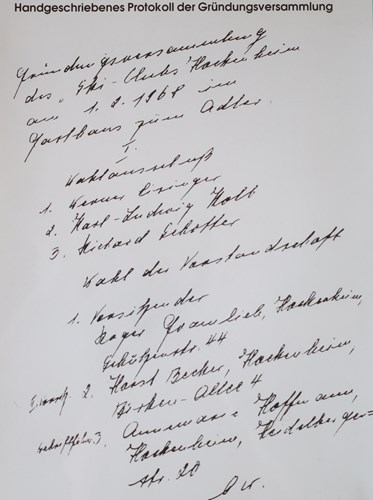 Handgeschriebenes Protokoll der Gründungsversammlung
Gründungsversammlung
des "Ski-Clubs" Hockenheim
am 1.2.1968 im
Gasthaus zum Adler
I.
Wahlausschuß
1. Werner Eisinger
2. Karl-Ludwig Kolb
3. Richard Schotter
Wahl der Vorstandschaft
1. Vorsitzender
Roger Hockenheim,
44
2. Horst Becker, Hockenheim,
Birken-Allee 4
3. Annemarie Hoffmann,
Hockenheim, Heidelberger=
str. 20